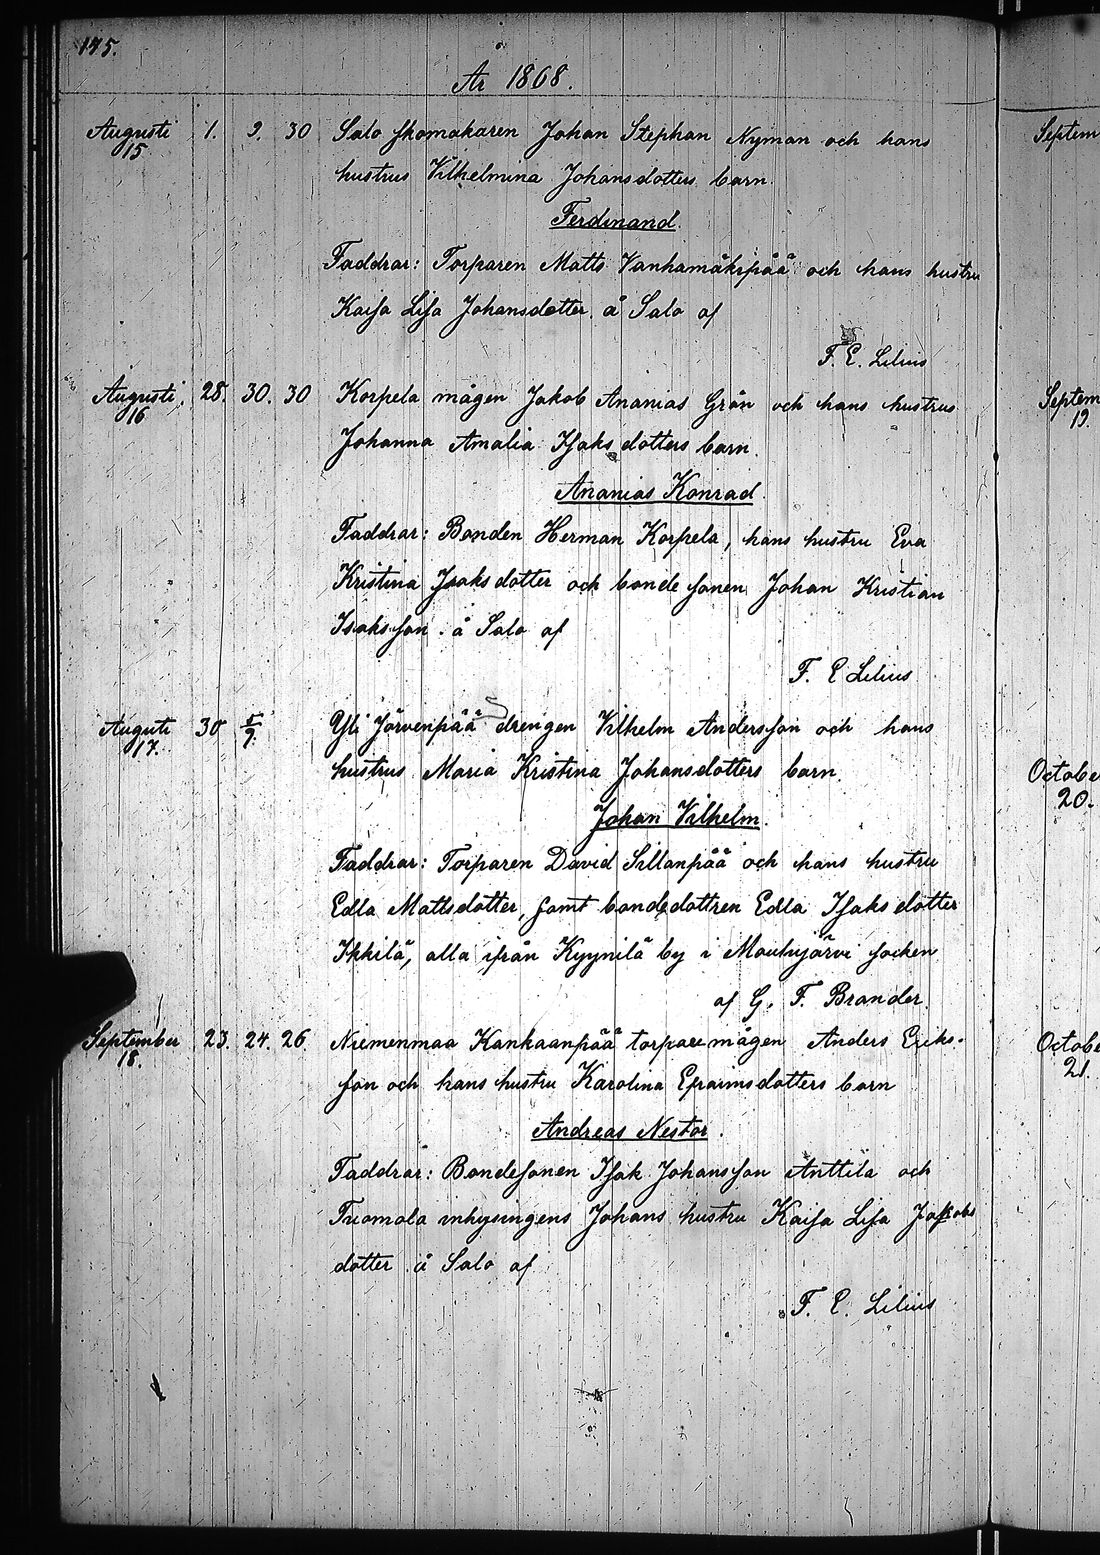 175.
År 1868.
Augusti 1. 9. 30 Salo skomakaren Johan Stephan Nyman och hans
15
hustrus Vilhelmina Johansdotters barn.
Ferdinand.
Faddrar: Torparen Matts Vanhamäkipää och hans hustru
Kaisa Lisa Johansdotter. å Salo af
F. E. Lilius
Augusti 28. 30. 30 Korpela mågen Jakob Ananias Grön och hans hustrus
16
Johanna Amalia Isaksdotters barn.
Ananias Konrad.
Faddrar: Bonden Herman Korpela, hans hustru Eva
Kristina Isaksdotter och bondesonen Johan Kristian
Isaksson. å Salo af
F. E Lilius
Augusti 30 5/9. Yli Järvenpää drengen Vilhelm Andersson och hans
17.
hustrus Maria Kristina Johansdotters barn.
Johan Vilhelm.
Faddrar: Torparen David Sillanpää och hans hustru
Edla Mattsdotter, samt bondedottren Edla Isaksdotter
Ikkilä, alla ifrån Kyynilä by i Mouhijärvi socken
af G. F. Brander.
September 23. 24. 26 Niemenmaa Kankaanpää torpare mågen Anders Eriks-
18.
son och hans hustru Karolina Efraimsdotters barn
Andreas Nestor.
Faddrar: Bondesonen Isak Johansson Anttila och
Tuomola inhysingens Johans hustru Kaisa Lisa Jakobs
dotter å Salo af
F. E. Lilius
Septem
Septem
19.
Octobe
20.
Octobe
21.